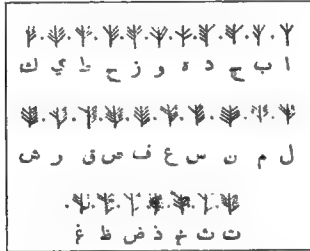 ا ب ج د ه و ز ح ط ي ك
ل م ن س ع ف ص ق ر ش
ت ث خ ذ ض ظ غ